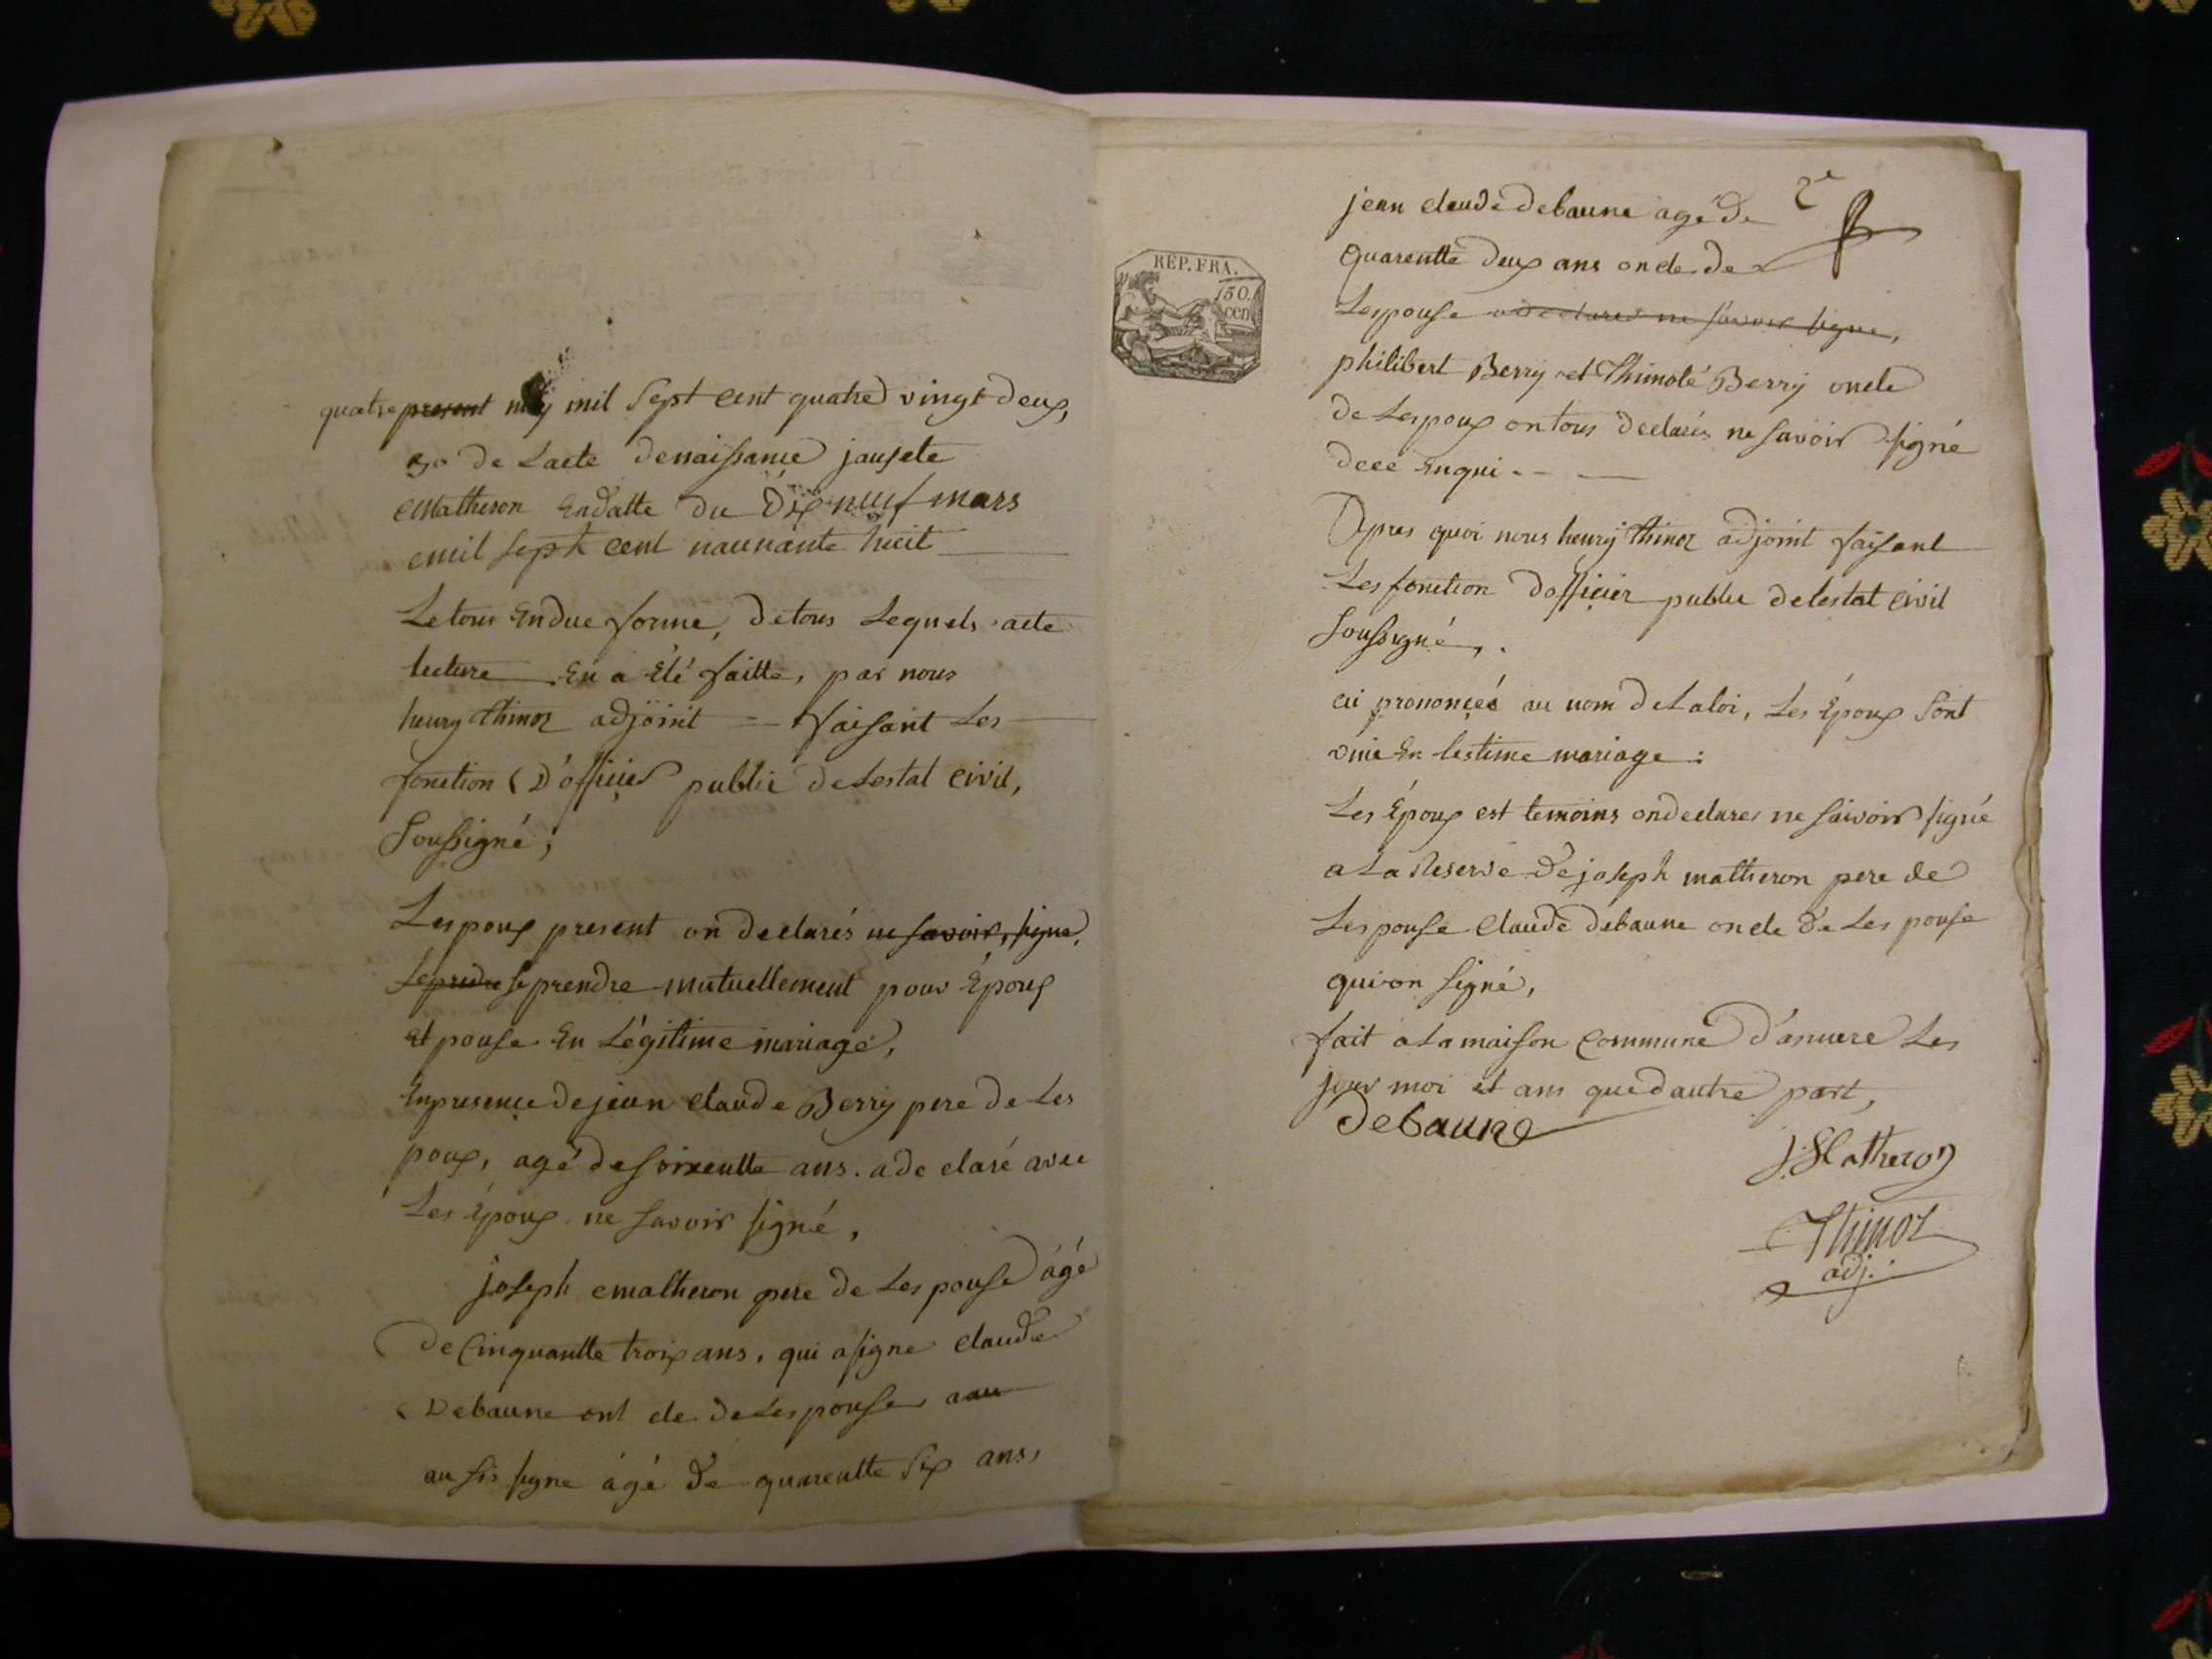 quatre present may mil Sept Cent quatre vingt deux,
2o de Lacte denaissance jausete
Matheron Endatte du Dix neuf mars
mil sept cent naunante huit
Letous Endue forme, detous Lequels acte
lecture En a Eté faitte, par nous
henry thinoz adjoint faisant Les
fonction D'officier public deLestat Civil,
Soussigné;
Lespoux present on declarés ne savoir, signe,
Seprendre se prendre mutuellement pour Époux
Et pouse En Légitime mariage,
Enpresence de jean Claude Berry pere de Les
poux, agé desoixentte ans. a de claré avec
Les Époux ne Savoir signé,
joseph matheron pere de Les pouse âgé
de Cinquantte troix ans, qui asigne claude
Debaune ont cle deLespouse
au sis signe âgé de quarentte Six ans,
2e
jean claude debaune agé de
quarentte deux ans oncle de
Lespouse a declares ne savoir signe,
REP. FRA.
150.
cen
philibert Berry et Thimoté Berry oncle
de Lespoux on tous declarés ne savoir signé
dece Enqui
Apres quoi nous henry thinoz adjoint faisant
Les fonction dofficier public delestat Civil
Soussigné,
ai prononcés au nom deLaloi, Les Époux Sont
unie En lestime mariage:
Les Époux est temoins ondeclares ne saivoir signé
a La Reserve de joseph matheron pere de
Lespouse Claude debaune oncle de Les pouse
qui on Signé,
fait aLamaison Commune d'anuere Les
jour moi et ans quedautre part,
debaune
J. Matheron
Thinoz
adj.